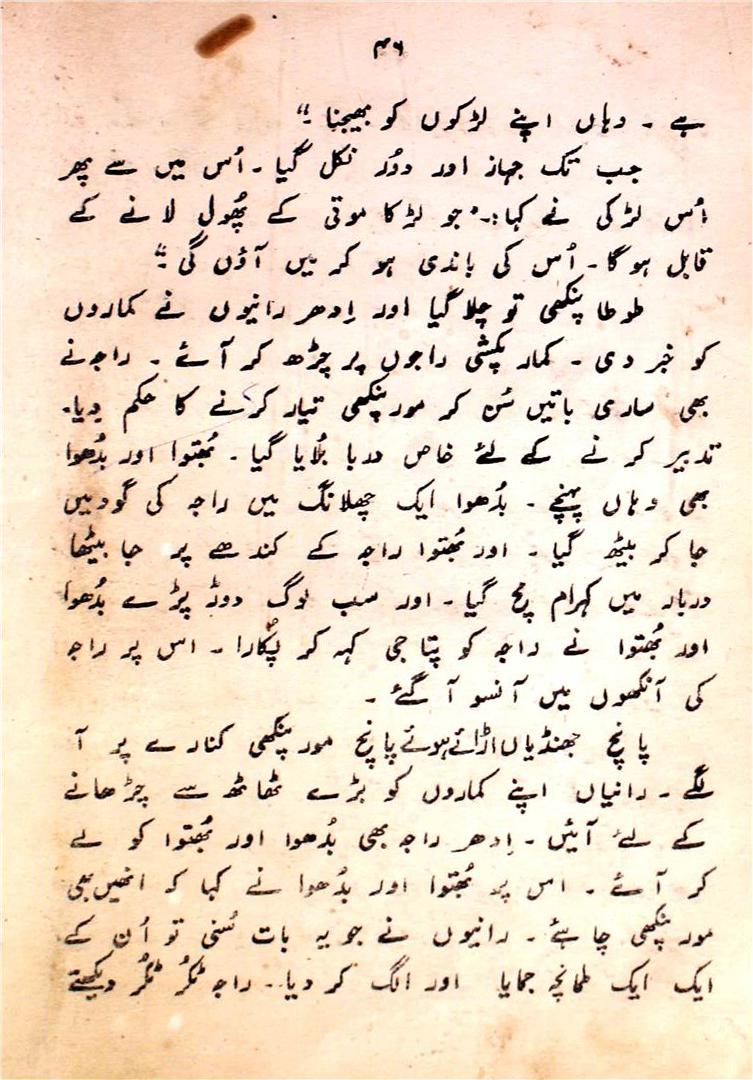 ۴۶
ہے ۔ وہاں اپنے لڑکوں کو بھیجنا ۔"
جب تک جہاز اور دوُر نکل گیا ۔ اُس میں سے پھر
اُس لڑکی نے کہا :۔ "جو لڑکا موتی کے پھُول لانے کے
قابل ہو گا ۔ اُس کی باندی ہو کر میں آؤں گی ۔"
طوطا پنکھی تو چلا گیا اور اِدھر رانیوں نے کماروں
کو خبر دی ۔ کمار پکشی راجوں پر چڑھ کر آئے ۔ راجہ نے
بھی ساری باتیں سُن کر مور پنکھی تیار کرنے کا حکم دِیا ۔
تدبیر کرنے کے لئے خاص دربا بُلایا گیا ۔ بھُتوا اور بدُھوا
بھی وہاں پہنچے ۔ بدُھوا ایک چھلانگ میں راجہ کی گود میں
جا کر بیٹھ گیا ۔ اور بھُتوا راجہ کے کندھے پر جا بیٹھا
دربار میں کہرام مچ گیا ۔ اور سب لوگ دوڑ پڑے بدُھوا
اور بھُتوا نے راجہ کو پتا جی کہہ کر پُکارا ۔ اس پر راجہ
کی آنکھوں میں آنسو آ گئے ۔
پانچ جھنڈیاں اڑائے ہوئے پانچ مور پنکھی کنارے پر آ
لگے ۔ رانیاں اپنے کماروں کو بڑے ٹھاٹھ سے چڑھانے
کے لئے آئیں ۔ اِدھر راجہ بھی بدُھوا اور بھُتوا کو لے
کر آئے ۔ اس پر بھُتوا اور بدُھوا نے کہا کہ انھیں بھی
مور پنکھی چاہئے ۔ رانیوں نے جو یہ بات سُنی تو اُن کے
ایک ایک طمانچہ جمایا اور الگ کر دیا ۔ راجہ ٹکُر ٹکُر دیکھتے